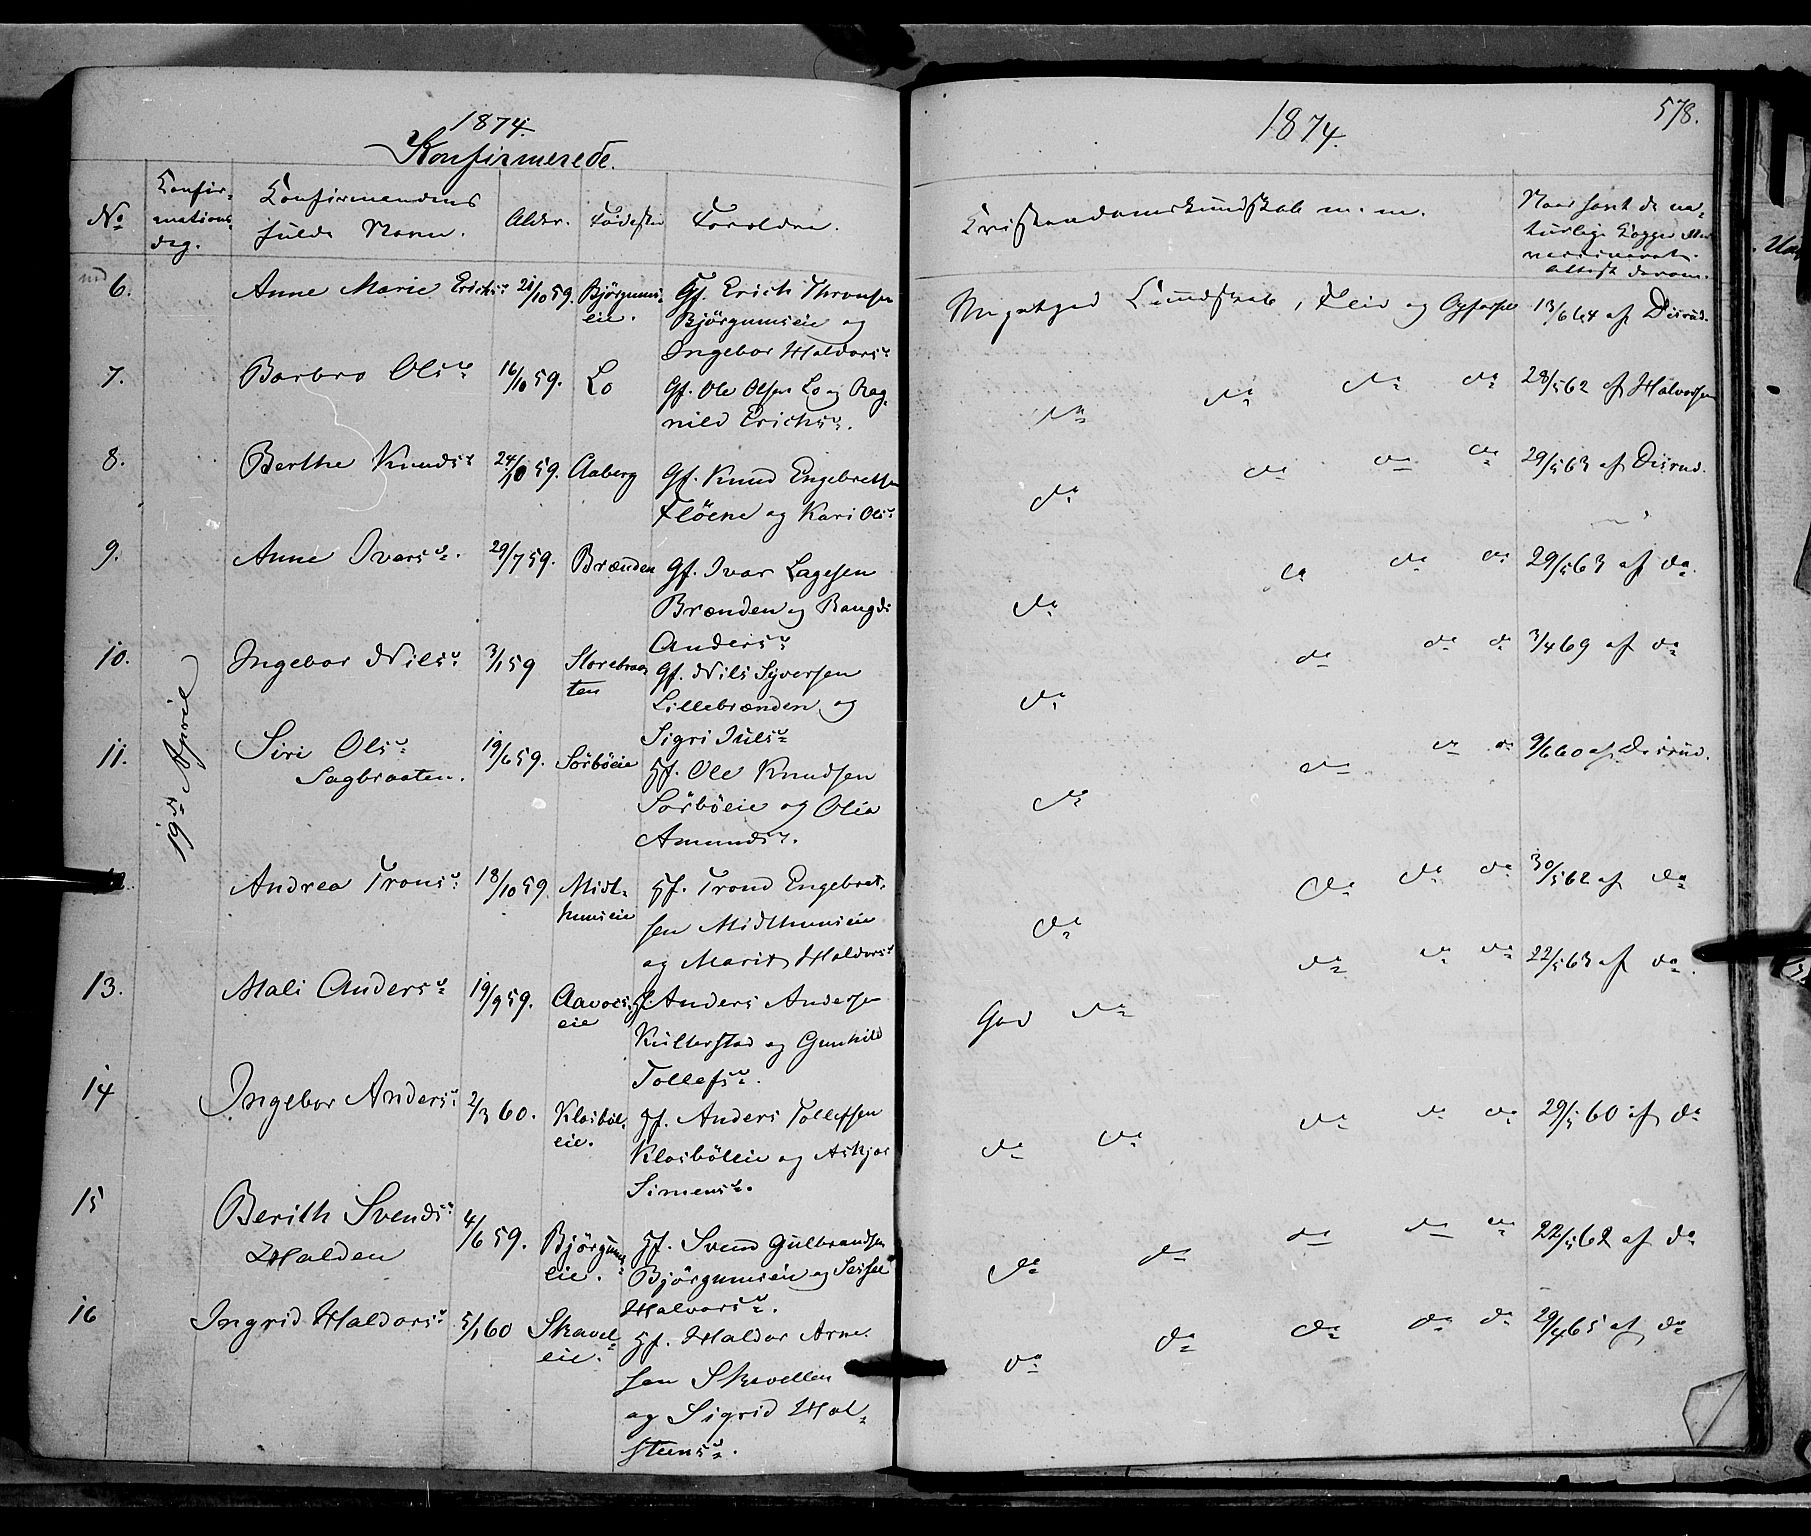 1874.
Konfirmerede.
No
Konfir-
mations
dag.
Konfirmandens
fulde Navn.
Alder.
Födested
Foreldre.
19de April
6.
Anne Marie Erichsd.
21/10 59.
Björgums-
eie.
Gf. Erich Thronsen
Björgumseie og
Ingebor Haldorsd.
7.
Barbro Olsd.
16/10 59.
Lo
Gf. Ole Olsen Lo og Rag-
nild Erichsd.
8.
Berthe Knudsd.
24/10 59.
Aaberg
Gf. Knud Engebretsen
Flöene og Kari Olsd.
9.
Anne Ivarsd.
29/7 59.
Brænden
Gf. Ivar Lagesen
Brænden og Rangdi
Andersd.
10.
Ingebor Nilsd.
3/1 59
Storebraa-
ten
Gf. Nils Syversen
Lillebrænden og
Sigri Julsd.
11.
Siri Olsd.
Sagbraaten.
19/6 59.
Sörböeie
Gf. Ole Knudsen
Sörböeie og Olia
Amundsd.
12.
Andrea Tronsd.
18/10 59.
Midt-
hunseie
Gf. Trond Engebret-
sen Midthunseie
og Marit Haldorsd.
13.
Mali Andersd.
19/9 59.
eie
Gf. Anders Andersen
Kulterstad og Gunhild
Tollefsd.
14
Ingebor Andersd.
2/3 60.
Klosböl-
eie.
Gf. Anders Tollefsen
Klosböleie og Askjer
Simensd.
15
Berith Svendsd.
Halden
4/6 59.
Björgums-
eie.
Gf. Svend Gulbrandsen
Björgumseie og Sissel
Halvorsd.
16
Ingrid Haldorsd.
5/1 60
Skavel-
eie.
Gf. Haldor Arne-
sen Skavellen
og Sigrid Hol-
steensd.
1874.
578.
Kristendomskundskab m. m.
Naar havt de na-
turlige Kopper eller
vaccineret.
Attest derom.
Meget god Kundskab, Fleid og Opførsel
13/6 64 af Disrud.
do do do do
28/5 62 af Halvorsen
do do do do
29/5 63 af Disrud.
do do do do
29/5 63 af do.
do do do do
3/4 69 af do
do do do do
9/6 60 af Disrud.
do do do do
30/5 62 af do
God do do do do
22/5 63 af do.
do do do do do
29/5 60 af do
do do do do do
22/5 62 af do
do do do do do
29/4 65 af do